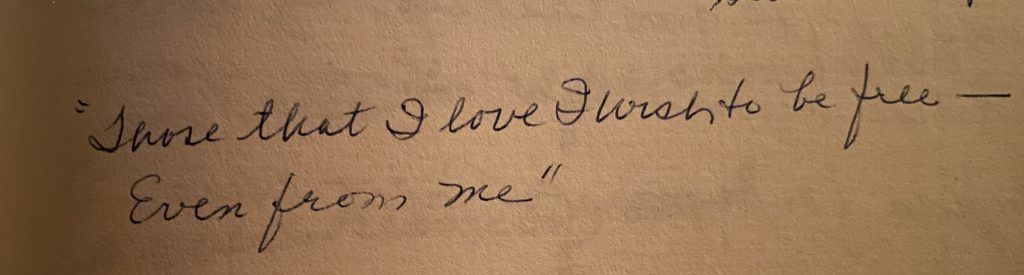 "Those that I love I wish to be free —
Even from me"